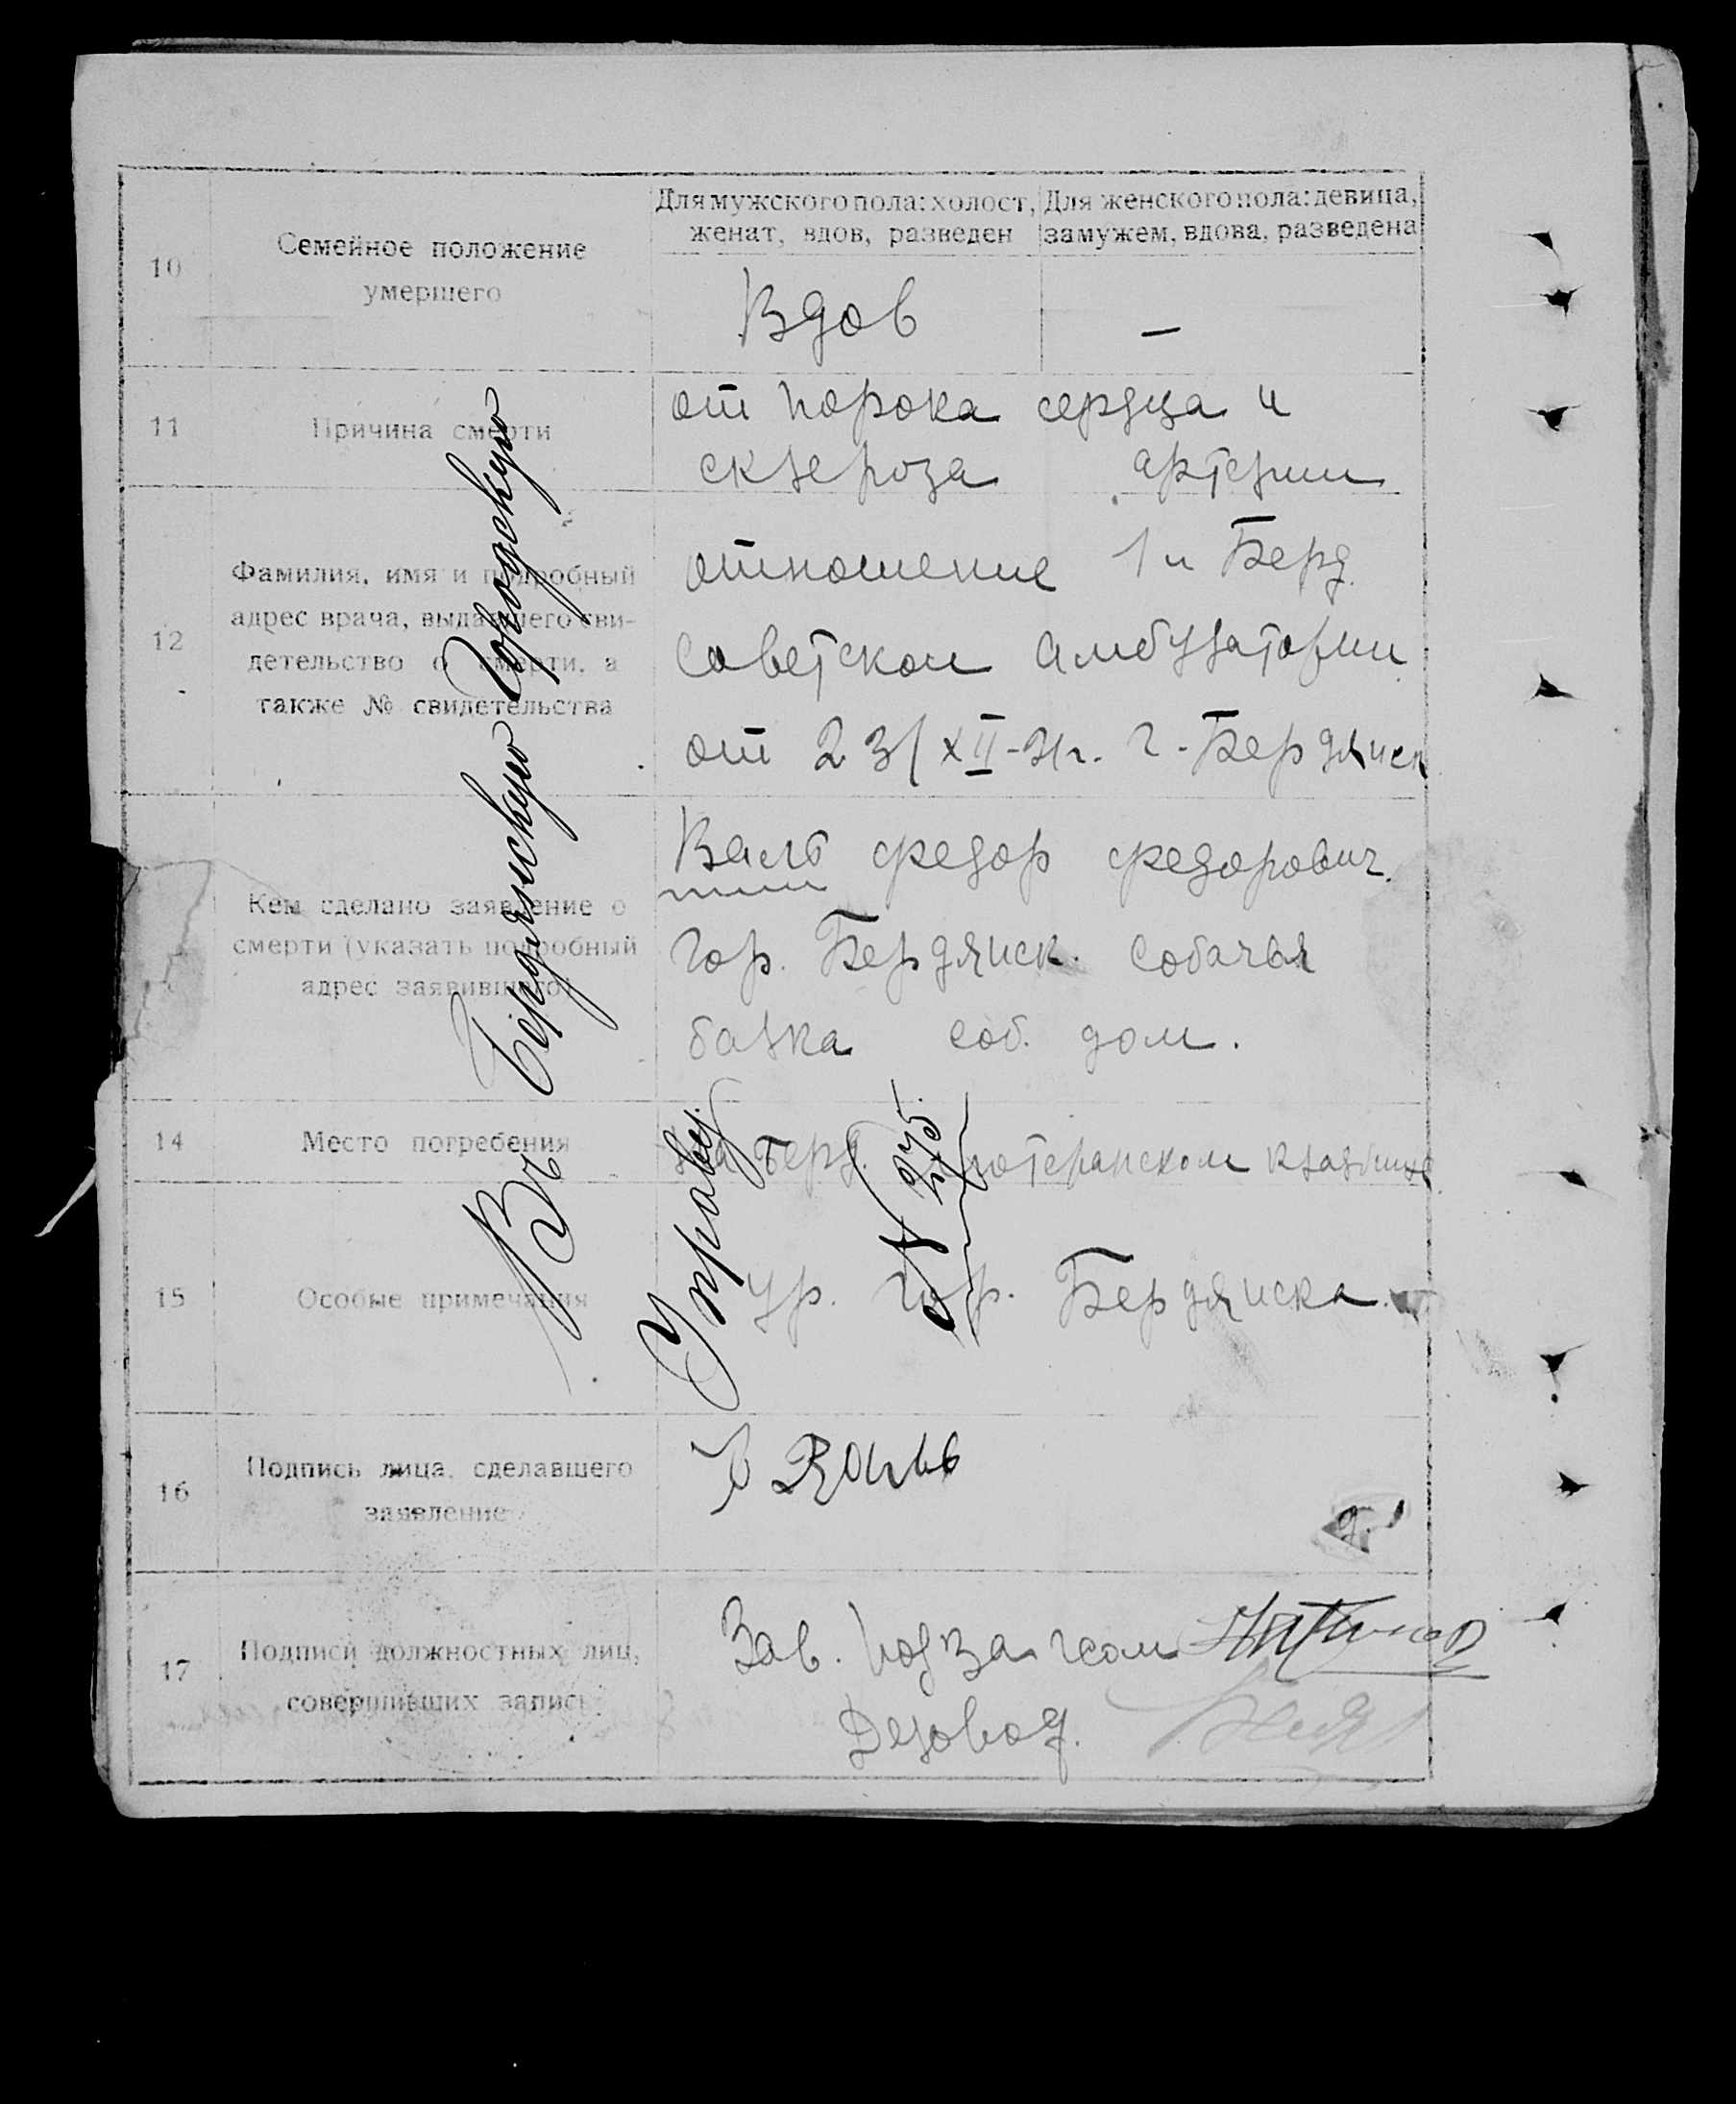 Для мужского пола: холост, женат, вдов, разведен
Для женского пола: девица, замужем, вдова, разведена
10
Семейное положение
умершего
Вдов
—
11
Причина смерти
от порока сердца и
склероза артерии
12
Фамилия, имя и подробный
адрес врача, выдавшего сви-
детельство о смерти, а
также № свидетельства
отношение 1й Берд.
советской амбулатории
от 23/XII-21г. г. Бердянск
Кем сделано заявление о
смерти (указать подробный
адрес заявившего)
Федор Федорович.
гор. Бердянск. Собачья
балка соб. дом.
14
Место погребения
Берд. лютеранском кладбище
15
Особые примечания
ур. гор. Бердянска.
16
Подпись лица, сделавшего
заявление
17
Подписи должностных лиц,
совершивших запись
Зав. подзагсом
Деловод.
Въ Бердянскую Городскую
Управу.